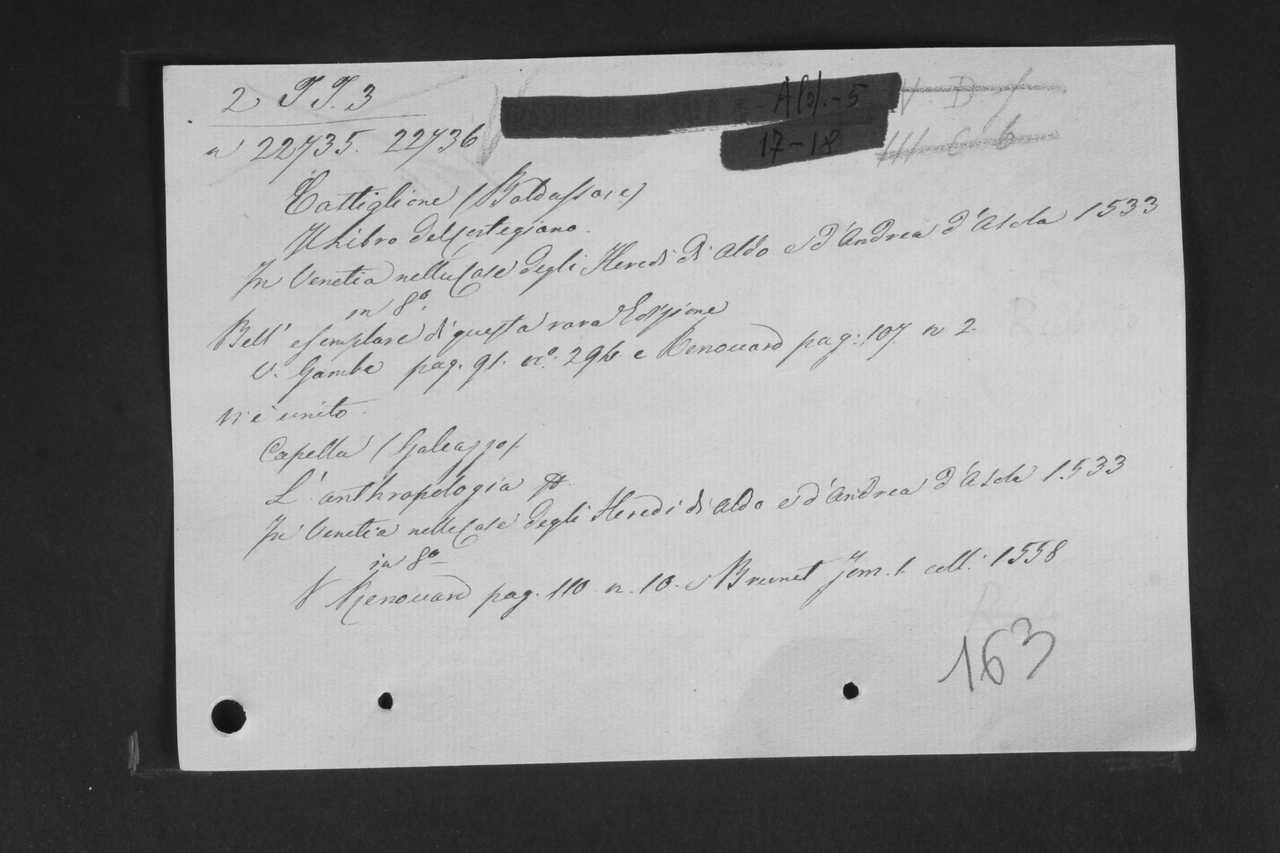 2 T T. 3
A(2).-5
V. D. f
n 22735. 22736
17-18
III C 6
Castiglione (Baldassare)
Il Libro del Cortegiano.
In Venetia nelle Case degli Heredi di Aldo e d'Andrea d'Asola 1533
in 8º
Bell' esemplare di questa rara Edizione
V. Gamba pag. 91. nº. 294 e Renouard pag: 107 n 2.
Vi è unito.
Capella (Galeazzo)
L'anthropologia
In Venetia nelle Case degli Heredi di Aldo e d'Andrea d'Asola 1533
in 8º
V Renouard pag. 110 n. 10. e Brunet Tom. 1. coll: 1558
163